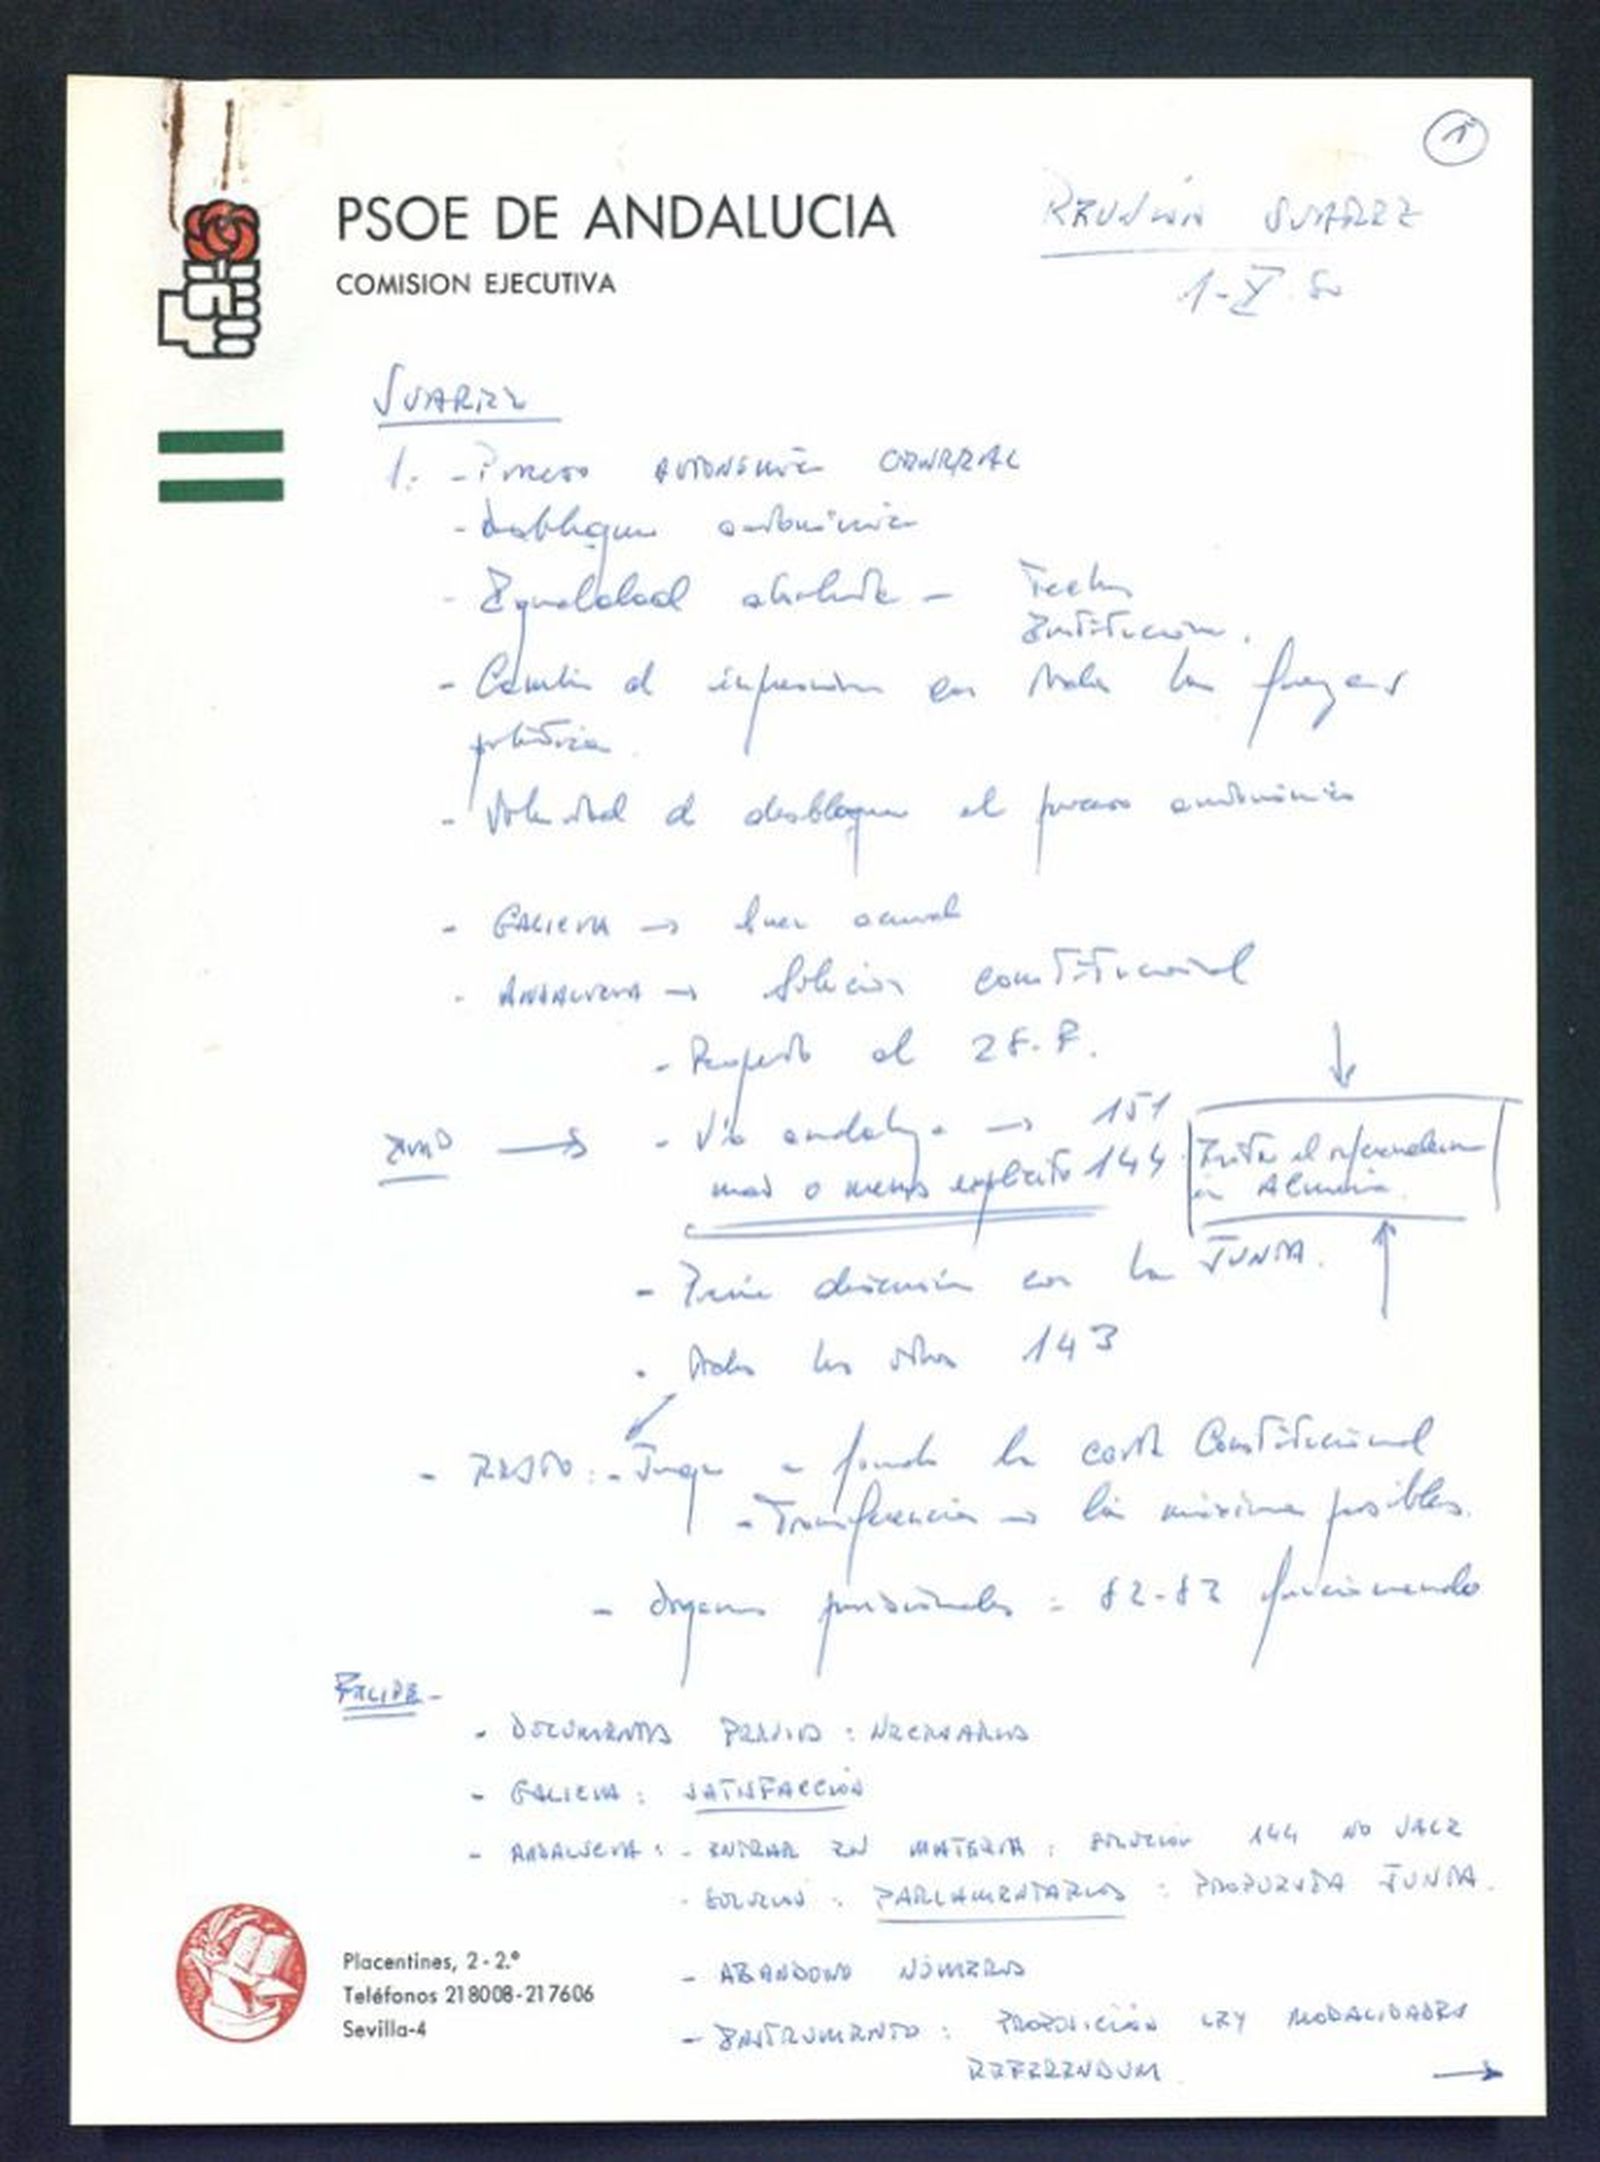 1
PSOE DE ANDALUCIA
COMISION EJECUTIVA
REUNIÓN SUAREZ
1-X-80
SUAREZ
1. - Proceso AUTONOMÍA GENERAL
- Desbloqueo autonómico
- Igualdad absoluta - Techos
Institución.
- Cambio de impresiones con todas las fuerzas
políticas.
- Voluntad de desbloquear el proceso autonómico
- GALICIA →
- ANDALUCIA → Solución constitucional
- Respeto al 28-F.
- Vía andaluza → 151
mas o menos explícito 144
Evitar el referendum
en Almería.
- Previa discusión con la JUNTA.
- Todos los otros 143
- RESTO: - Jugar a fondo la carta Constitucional
- Transferencias → las máximas posibles.
- Órganos provisionales = 82-83 funcionando
FELIPE -
- DOCUMENTOS PREVIOS: NECESARIOS
- GALICIA: SATISFACCIÓN
- ANDALUCIA: - ENTRAR EN MATERIA: SOLUCIÓN 144 NO VALE
- SOLUCIÓN: PARLAMENTARIOS: PROPUESTA JUNTA.
- ABANDONO NÚMEROS
- INSTRUMENTO: PROPOSICIÓN LEY MODALIDADES
REFERENDUM →
Placentines, 2 - 2.º
Teléfonos 218008 - 217606
Sevilla-4